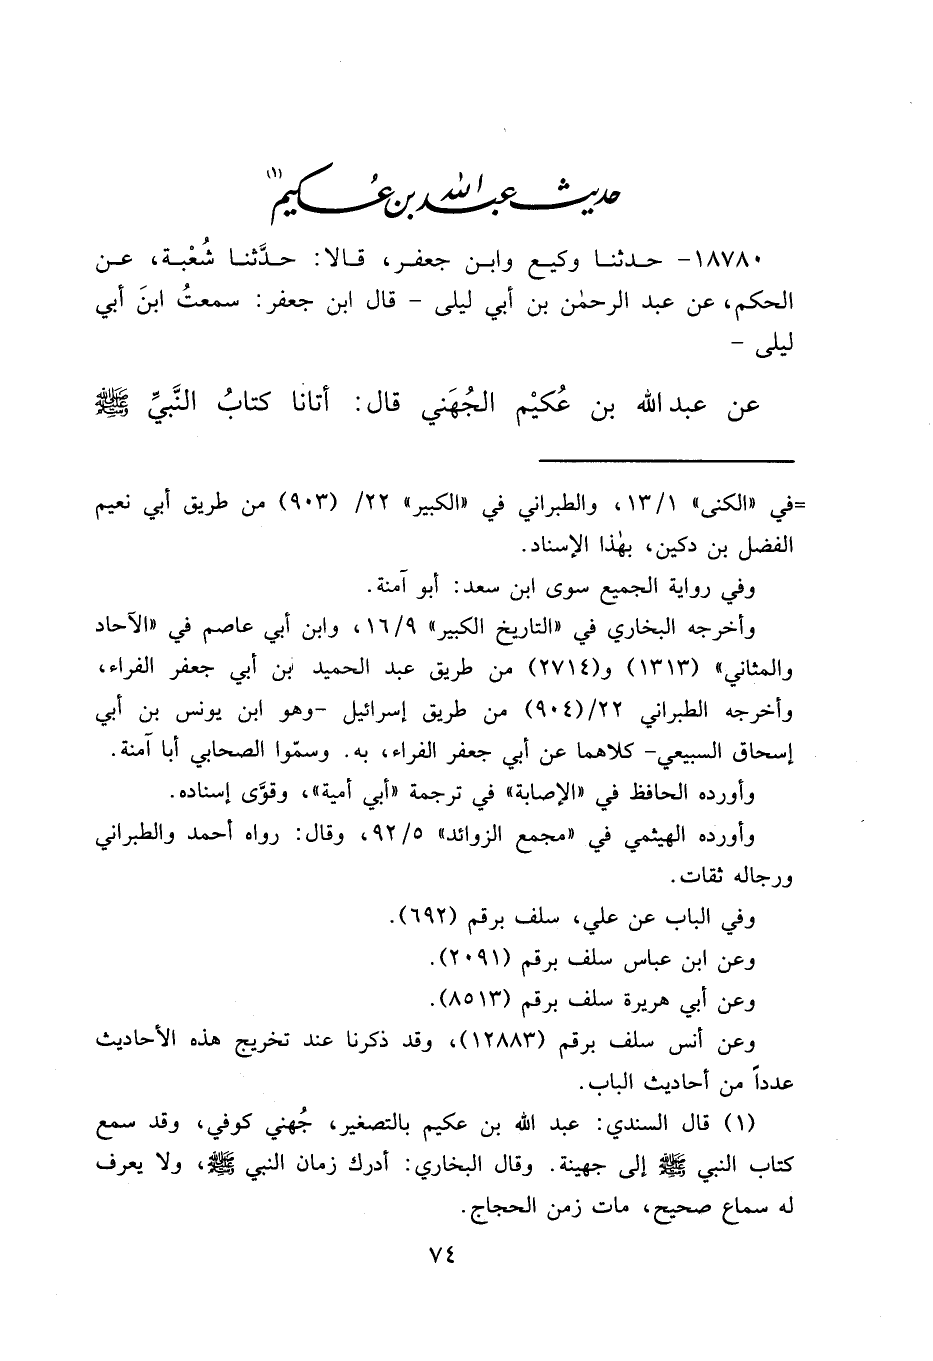 حديث عبد الله بن عُكيم (١)
١٨٧٨٠- حدثنا وكيع وابن جعفر، قالا: حدَّثنا شُعْبة، عن
الحكم، عن عبد الرحمٰن بن أبي ليلى - قال ابن جعفر: سمعتُ ابنَ أبي
ليلى -
عن عبد الله بن عُكيْم الجُهَني قال: أتانا كتابُ النَّبيِّ ﷺ
=في «الكنى» ١٣/١، والطبراني في «الكبير» ٢٢/ (٩٠٣) من طريق أبي نعيم
الفضل بن دكين، بهٰذا الإسناد.
وفي رواية الجميع سوى ابن سعد: أبو آمنة.
وأخرجه البخاري في «التاريخ الكبير» ١٦/٩، وابن أبي عاصم في «الآحاد
والمثاني» (١٣١٣) و(٢٧١٤) من طريق عبد الحميد بن أبي جعفر الفراء،
وأخرجه الطبراني ٢٢/(٩٠٤) من طريق إسرائيل -وهو ابن يونس بن أبي
إسحاق السبيعي- كلاهما عن أبي جعفر الفراء، به. وسمّوا الصحابي أبا آمنة.
وأورده الحافظ في «الإصابة» في ترجمة «أبي أمية»، وقوَّى إسناده.
وأورده الهيثمي في «مجمع الزوائد» ٩٢/٥، وقال: رواه أحمد والطبراني
ورجاله ثقات.
وفي الباب عن علي، سلف برقم (٦٩٢).
وعن ابن عباس سلف برقم (٢٠٩١).
وعن أبي هريرة سلف برقم (٨٥١٣).
وعن أنس سلف برقم (١٢٨٨٣)، وقد ذكرنا عند تخريج هذه الأحاديث
عدداً من أحاديث الباب.
(١) قال السندي: عبد الله بن عكيم بالتصغير، جُهني كوفي، وقد سمع
كتاب النبي ﷺ إلى جهينة. وقال البخاري: أدرك زمان النبي ﷺ، ولا يعرف
له سماع صحيح، مات زمن الحجاج.
٧٤